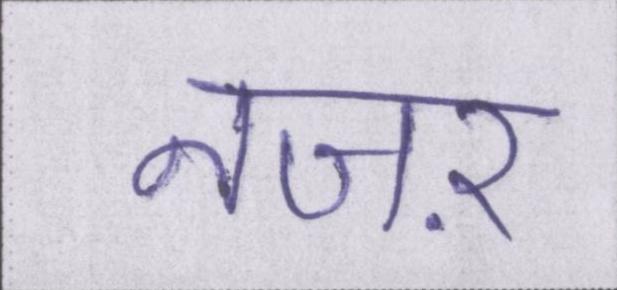 नज़र